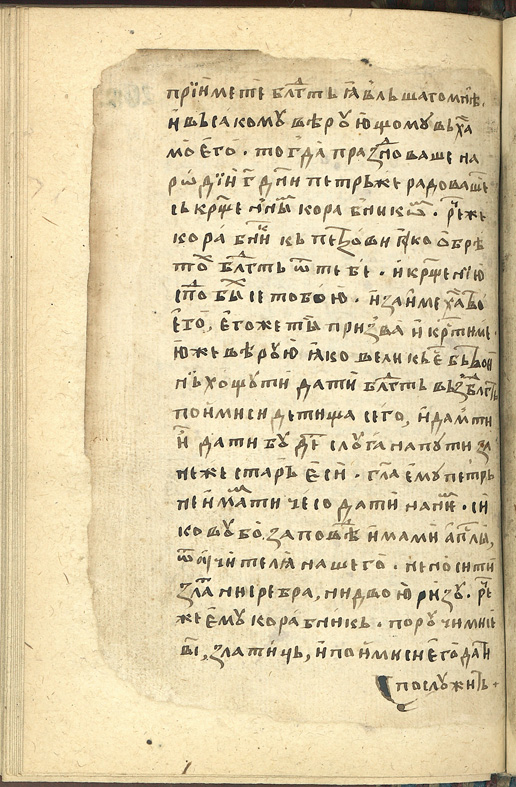 прїимете блгть ꙗвльшагомисѧ.
и вьсакомꙋ вѣрꙋющомꙋ вь ха
моего. тогда празноваше на
ро дїи г҃ дни петрь же радоваше
сь крщенны корабникѡ. рече же
корабни кь петрови ꙗко обрѣ
то блгть ѿ тебе. и крщенїю
спо бы сь тобою. и заимеха во
его, егоже ты призва и крти ме.
юже вѣрꙋю ꙗко великь е бь вои
нь хощꙋ ти дати блгть вьз блгть
поими си детища сего, и дам ти
и дати бꙋде слꙋга на пꙋти за
неже старь еси. гла емꙋ петрь
не имаⷨ ти чесо дати на не. си
ковꙋ бо заповѣ имами апли,
ѿ ꙋчителꙗ нашего. не носити
зла ни сребра, ни двою ризꙋ. ре
же емꙋ корабникь. порꙋчи мнѣ
ві, златичь, и поими си его да ти
послꙋжить.